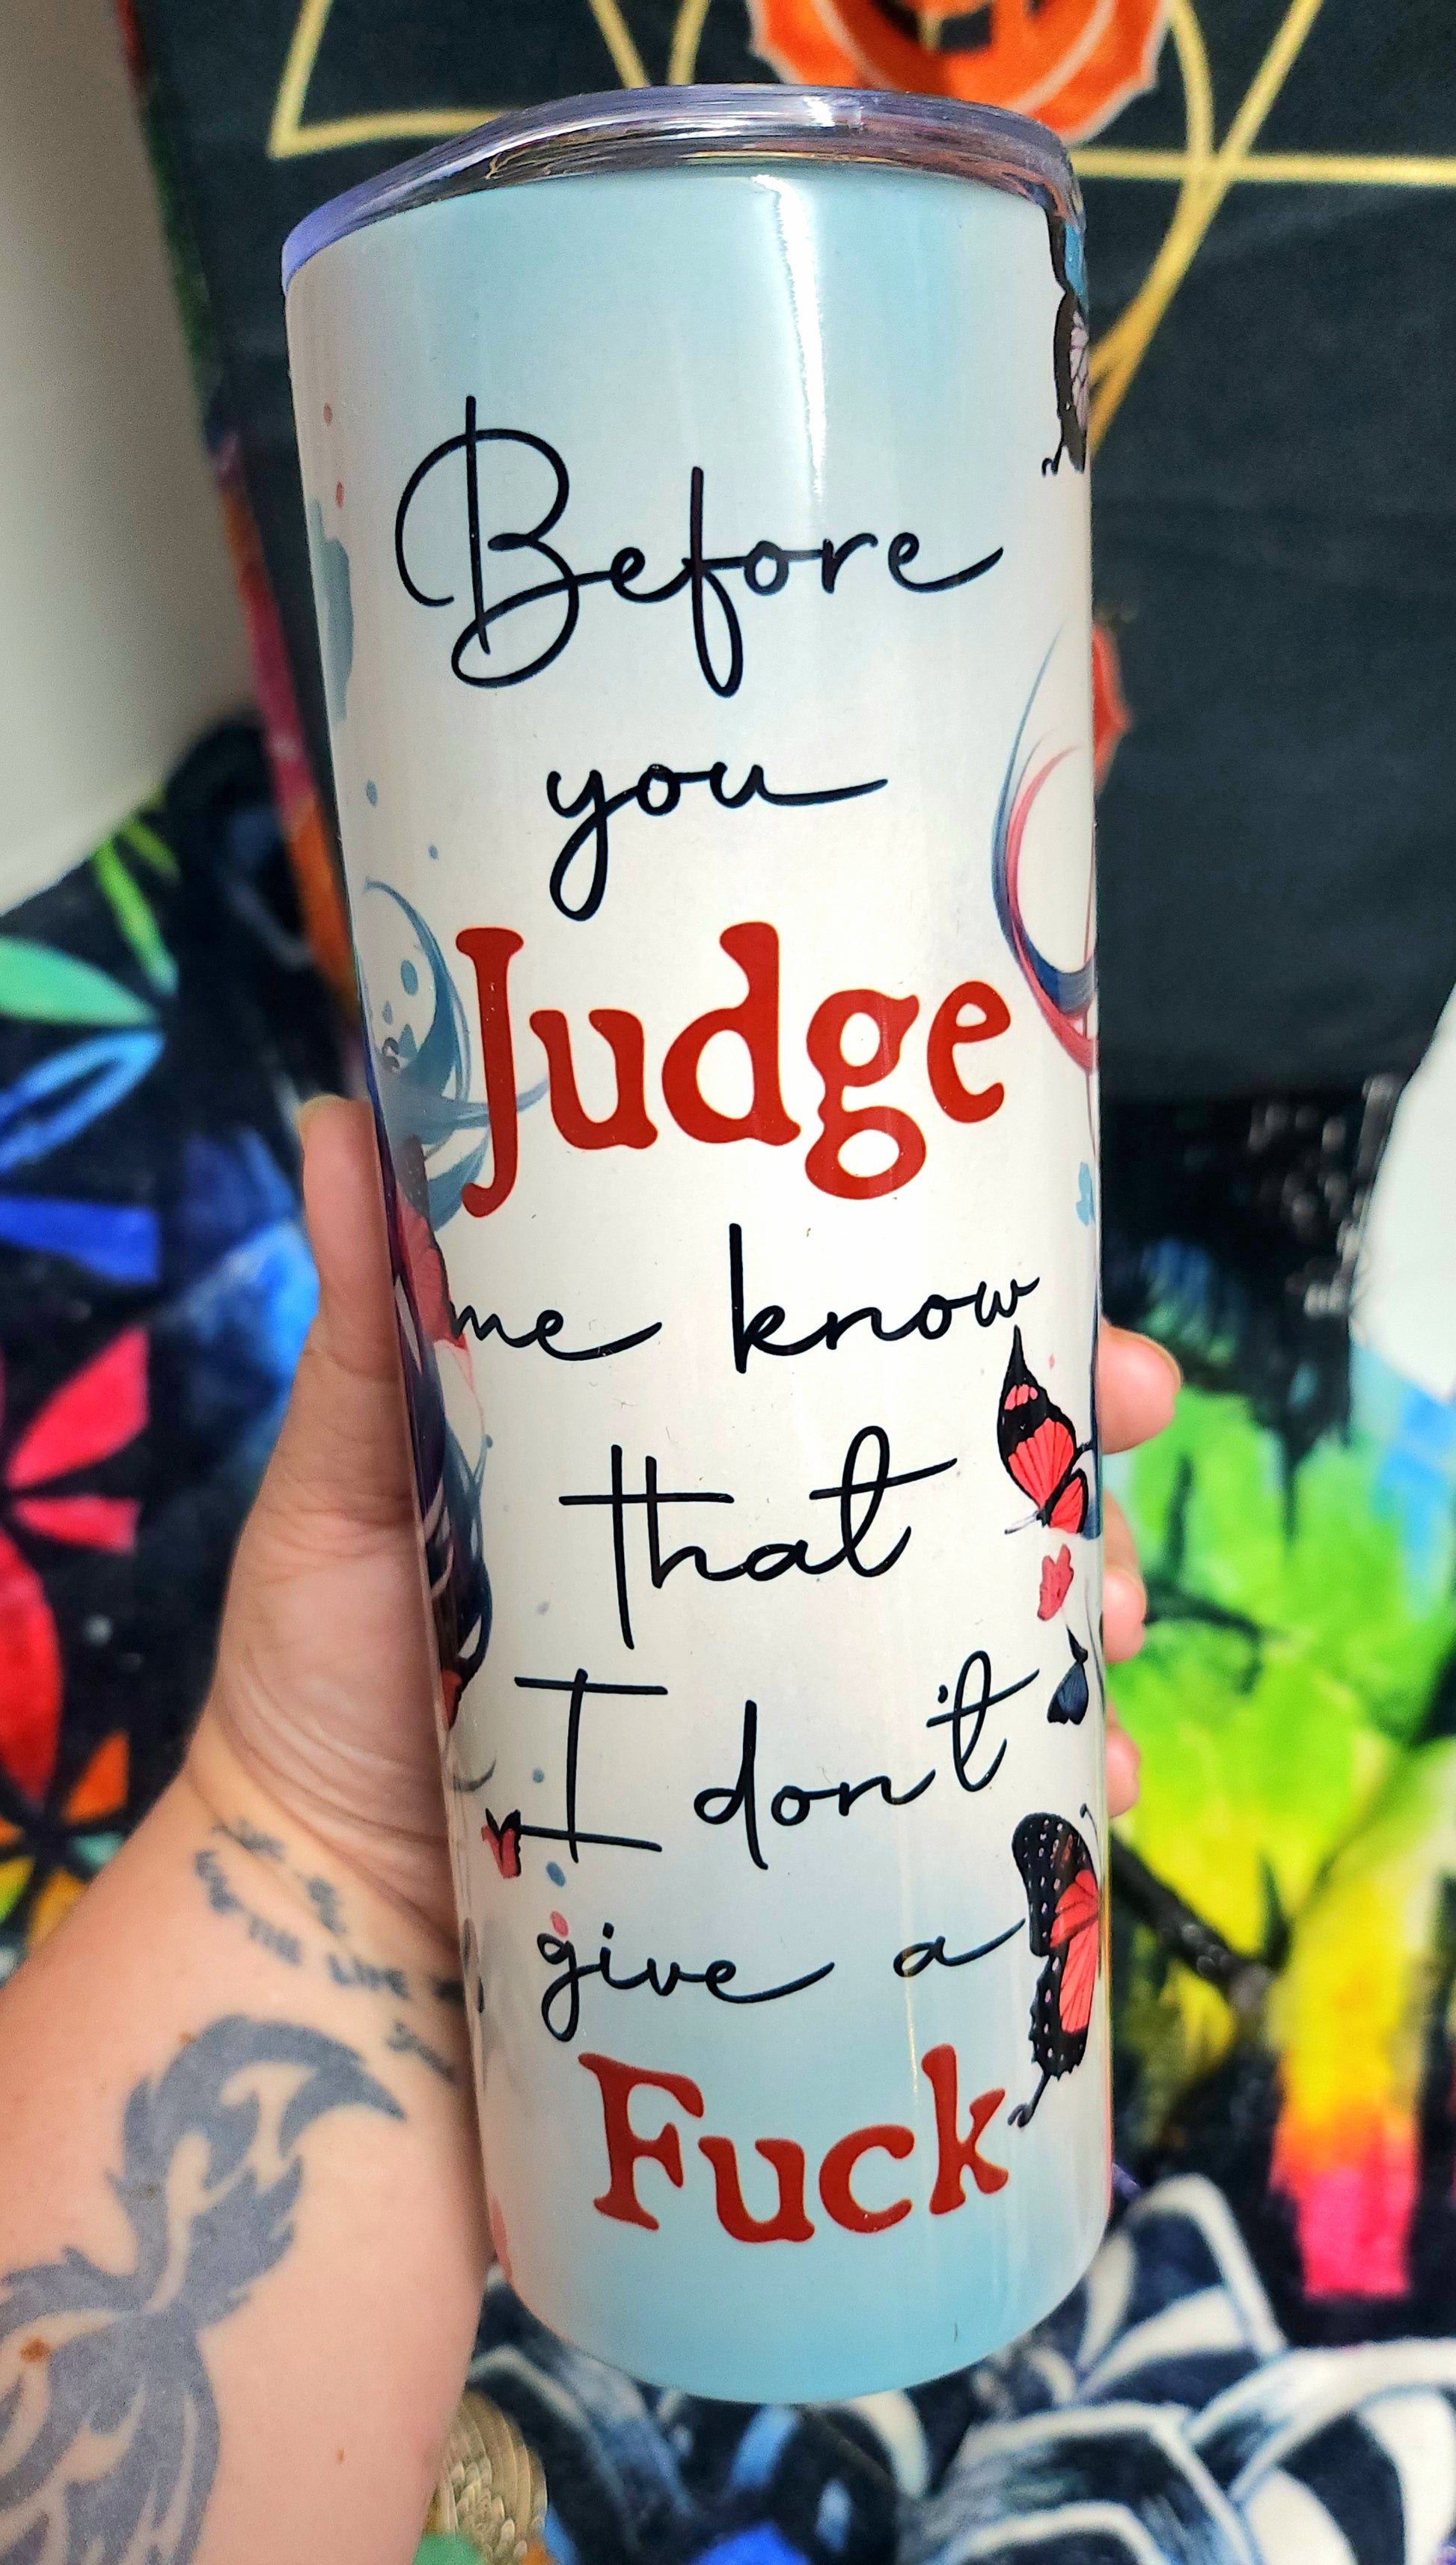 Before
you
Judge
me know
that
I don't
give a
Fuck
THE LIFE